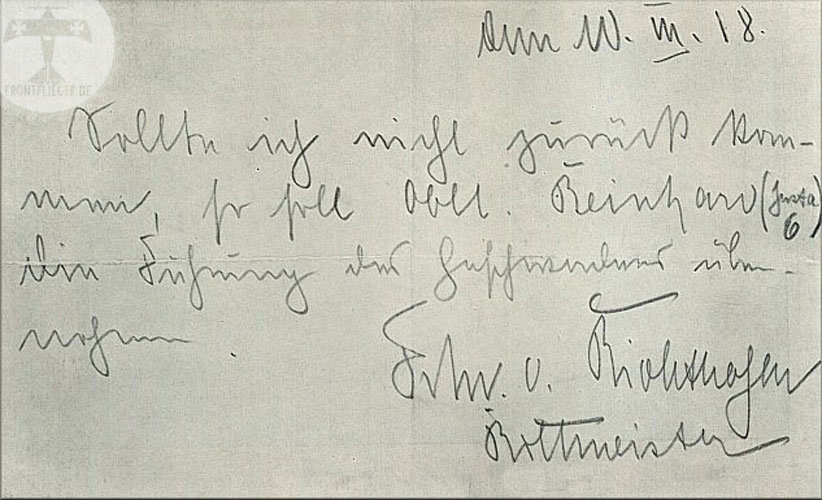 FRONTFLIEGER.DE
den 10. III. 18.
Sollte ich nicht zurück kom-
men, so soll Oblt. Reinhard (Jasta
6)
die Führung des Geschwaders über-
nehmen.
Frhr. v. Richthofen
Rittmeister